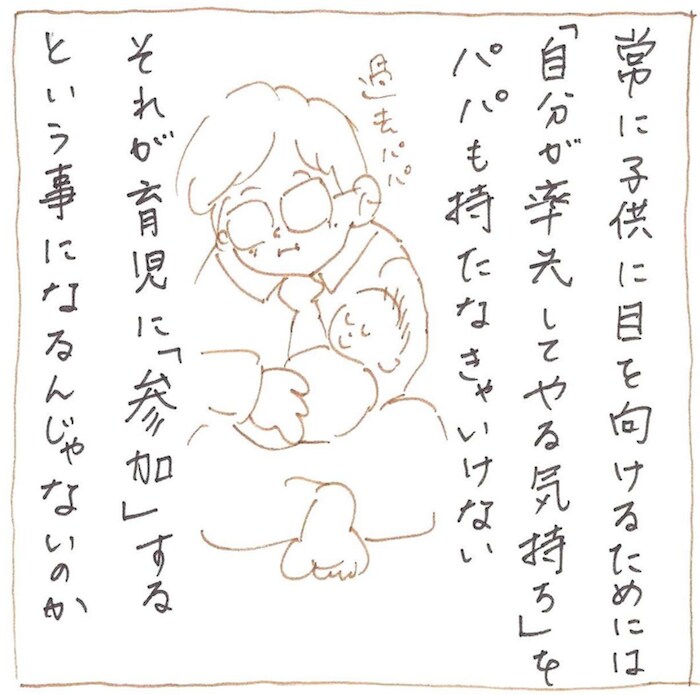 常に子供に目を向けるためには
「自分が率先してやる気持ち」を
パパも持たなきゃいけない
過去パパ
それが育児に「参加」する
という事になるんじゃないのか